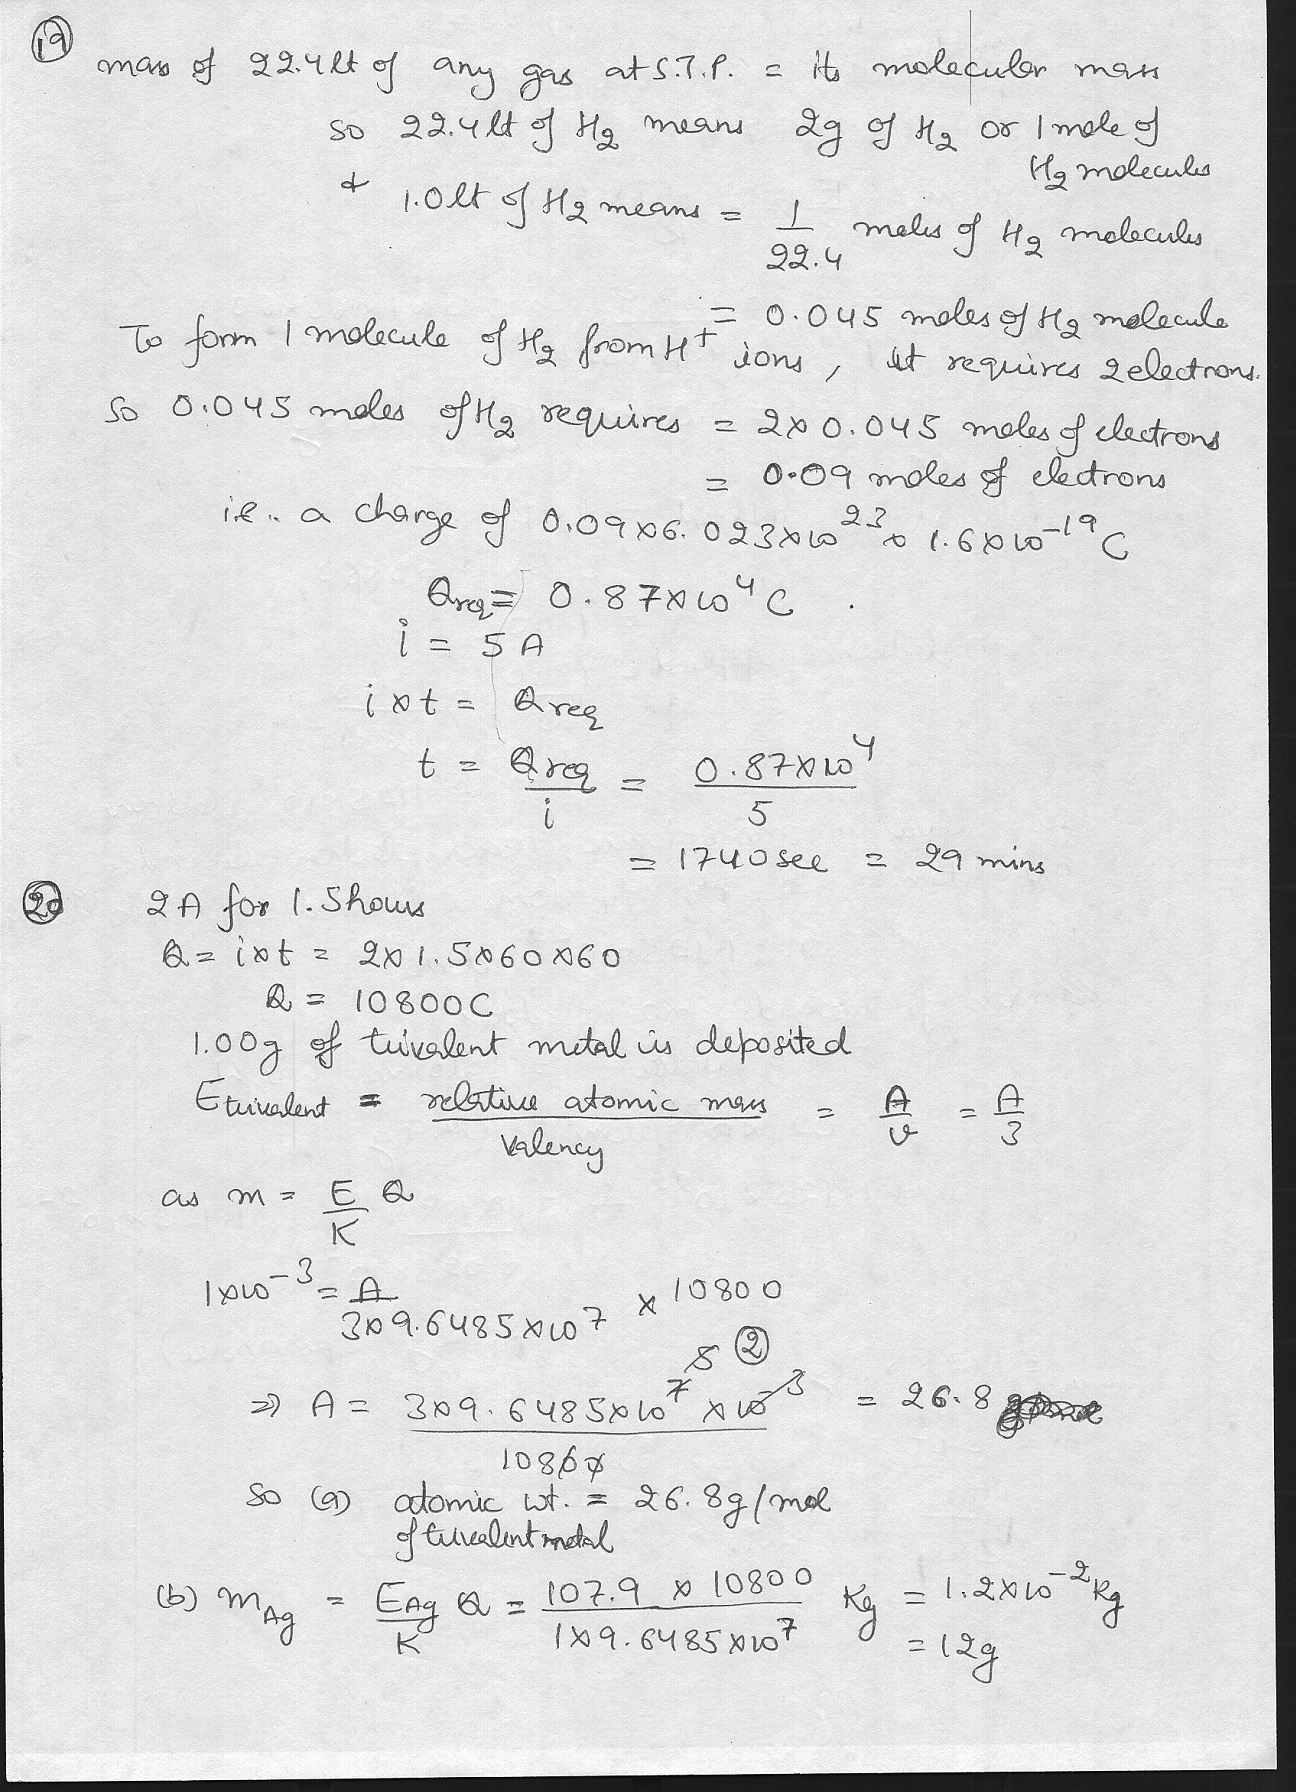 19
mass of 22.4lt of any gas at S.T.P. = its molecular mass
so 22.4lt of H2 means 2g of H2 or 1 mole of
H2 molecules
& 1.0lt of H2 means = 1/22.4 moles of H2 molecules
= 0.045 moles of H2 molecule
To form 1 molecule of H2 from H+ ions, it requires 2 electrons.
So 0.045 moles of H2 requires = 2×0.045 moles of electrons
= 0.09 moles of electrons
i.e.. a charge of 0.09×6.023×10^23 × 1.6×10^-19 C
Qreq = 0.87×10^4 C
i = 5A
i×t = Qreq
t = Qreq/i = 0.87×10^4/5
= 1740sec = 29 mins
20 2A for 1.5hours
Q = i×t = 2×1.5×60×60
Q = 10800C
1.00g of trivalent metal is deposited
Etrivalent = relative atomic mass/Valency = A/v = A/3
as m = E/K Q
1×10^-3 = A/3×9.6485×10^7 × 10800
5 2
⇒ A = 3×9.6485×10^7 ×10^-3/10800 = 26.8
so (a) atomic wt. = 26.8g/mol
of trivalent metal
(b) mAg = EAg/K Q = 107.9 × 10800/1×9.6485×10^7 Kg = 1.2×10^-2 Kg
= 12g